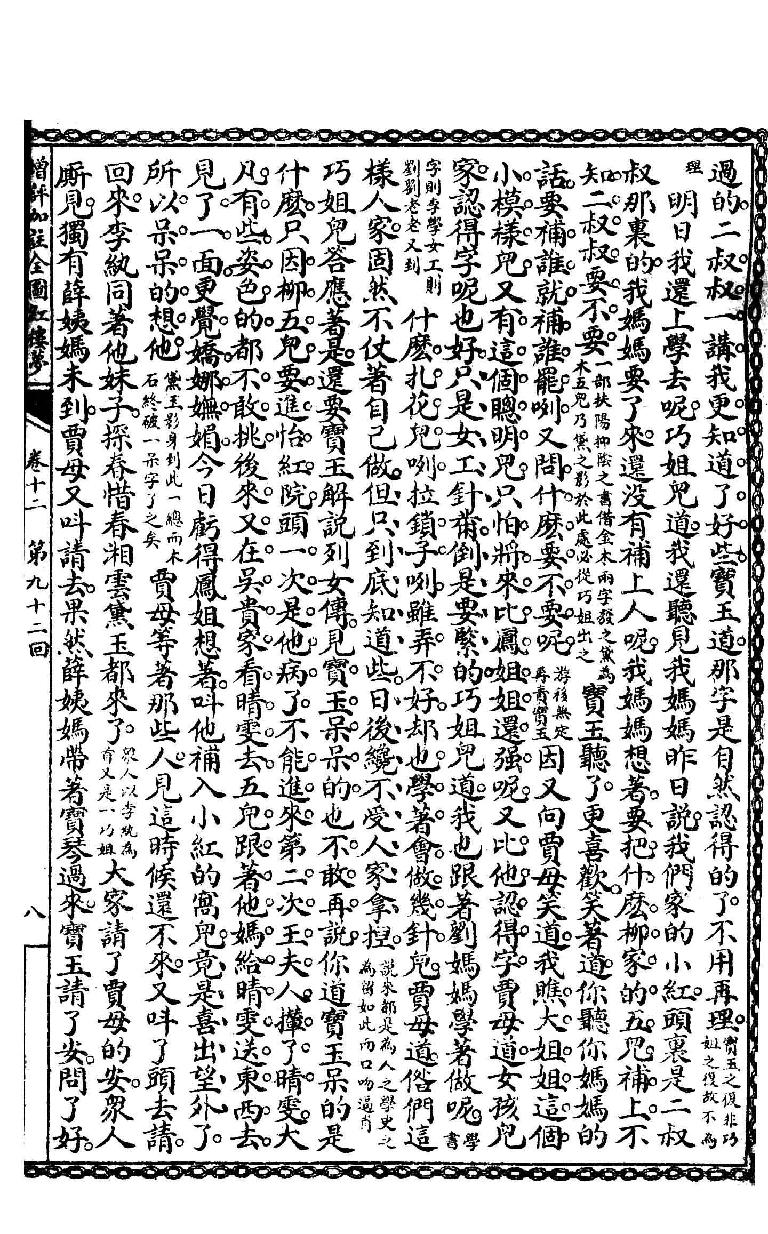 過的二叔叔一講我更知道了好些寶玉道那字是自然認得的了不用再理寶玉之復非巧姐之復故不為
理
明日我還上學去呢巧姐兒道我還聽見我媽媽昨日說我們家的小紅頭裏是二叔
叔那裏的我媽媽要了來還沒有補上人呢我媽媽想著要把什麽柳家的五兒補上不
知二叔叔要不要一部扶陽抑陰之書借金木兩字發之黛為木五兒乃黛之影於此處必從巧姐出之寶玉聽了更喜歡笑著道你聽你媽媽的
話要補誰就補誰罷咧又問什麽要不要呢因又向賈母笑道我瞧大姐姐這個
小模樣兒又有這個聰明兒只怕將來比鳳姐姐還强呢又比他認得字賈母道女孩兒
家認得字呢也好只是女工針黹倒是要緊的巧姐兒道我也跟著劉媽媽學著做呢學書
字則李學女工則劉劉老老又到什麽扎花兒咧拉鎖子咧雖弄不好却也學著會做幾針兒賈母道偺們這
樣人家固然不仗著自己做但只到底知道些日後纔不受人家拿揑
巧姐兒答應著是還要寶玉解說列女傳見寶玉呆呆的也不敢再說你道寶玉呆的是
什麽只因柳五兒要進怡紅院頭一次是他病了不能進來第二次王夫人攆了晴雯大
凡有些姿色的都不敢挑後來又在吳貴家看晴雯去五兒跟著他媽給晴雯送東西去
見了一面更覺嬌娜嫵媚今日虧得鳳姐想著呌他補入小紅的窩兒竟是喜出望外了
所以呆呆的想他黛玉影身到此一總而木石終破一呆字了之矣賈母等著那些人見這時候還不來又呌丫頭去請
回來李紈同著他妹子探春惜春湘雲黛玉都來了大家請了賈母的安衆人
廝見獨有薛姨媽未到賈母又呌請去果然薛姨媽帶著寶琴過來寶玉請了安問了好
增評加註全圖紅樓夢 卷十二 第九十二回 八